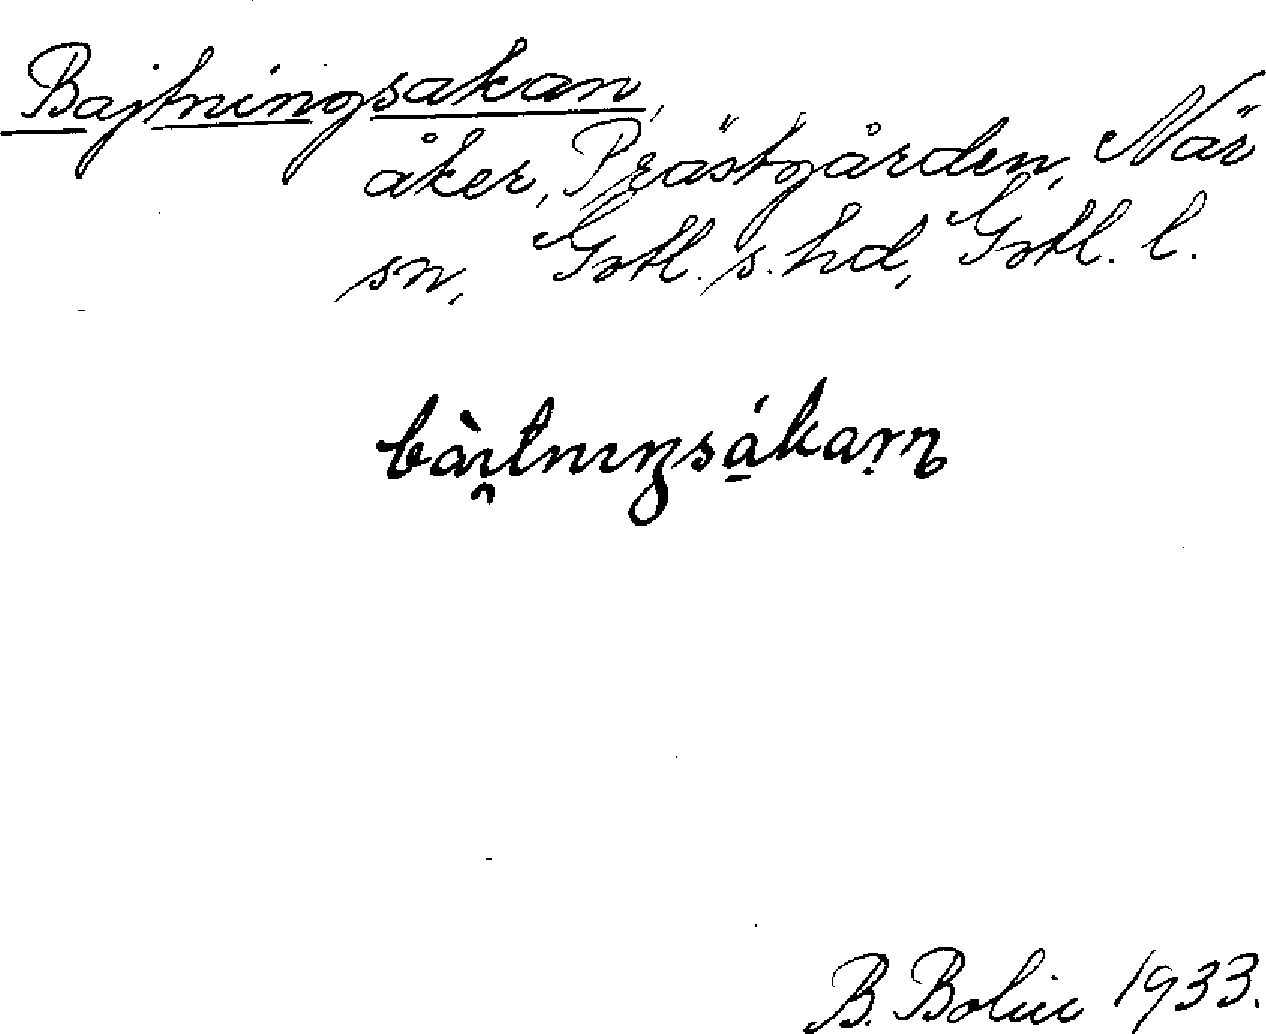 Bajtningsakan,
åker, Prästgården, När
sn, Gotl. s. hd, Gotl. l.
B. Bolin 1933.